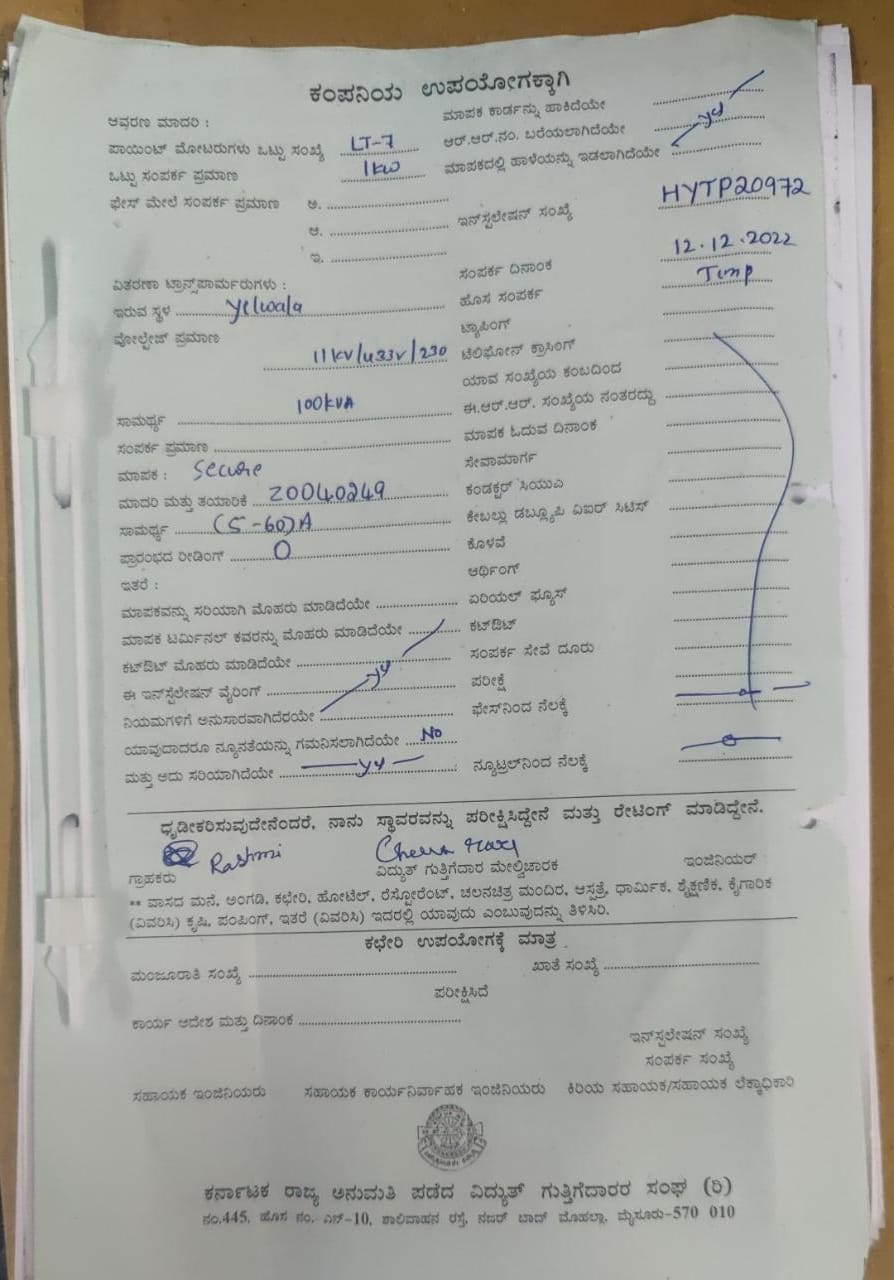 ಕಂಪನಿಯ ಉಪಯೋಗಕ್ಕಾಗಿ
ಆವರಣ ಮಾದರಿ :
ಮಾಪಕ ಕಾರ್ಡನ್ನು ಹಾಕಿದೆಯೇ
ಪಾಯಿಂಟ್ ಮೋಟರುಗಳು ಒಟ್ಟು ಸಂಖ್ಯೆ LT-7
ಆರ್.ಆರ್.ನಂ. ಬರೆಯಲಾಗಿದೆಯೇ
ಒಟ್ಟು ಸಂಪರ್ಕ ಪ್ರಮಾಣ 1kw
ಮಾಪಕದಲ್ಲಿ ಹಾಳೆಯನ್ನು ಇಡಲಾಗಿದೆಯೇ
ಫೇಸ್ ಮೇಲೆ ಸಂಪರ್ಕ ಪ್ರಮಾಣ ಅ.
ಆ.
ಇನ್‌ಸ್ಟಲೇಷನ್ ಸಂಖ್ಯೆ HYTP20972
ಇ.
ವಿತರಣಾ ಟ್ರಾನ್ಸ್‌ಪಾರ್ಮರುಗಳು :
ಸಂಪರ್ಕ ದಿನಾಂಕ 12.12.2022
ಇರುವ ಸ್ಥಳ Yelwala
ಹೊಸ ಸಂಪರ್ಕ Temp
ವೋಲ್ಟೇಜ್ ಪ್ರಮಾಣ
ಟ್ಯಾಪಿಂಗ್
11kv/433v/230
ಟೆಲಿಫೋನ್ ಕ್ರಾಸಿಂಗ್
ಯಾವ ಸಂಖ್ಯೆಯ ಕಂಬದಿಂದ
ಸಾಮರ್ಥ್ಯ 100kVA
ಈ.ಆರ್.ಆರ್. ಸಂಖ್ಯೆಯ ನಂತರದ್ದು
ಸಂಪರ್ಕ ಪ್ರಮಾಣ
ಮಾಪಕ ಓದುವ ದಿನಾಂಕ
ಮಾಪಕ : Secure
ಸೇವಾಮಾರ್ಗ
ಮಾದರಿ ಮತ್ತು ತಯಾರಿಕೆ 20040249
ಕಂಡಕ್ಟರ್ ಸಿಯುಎ
ಸಾಮರ್ಥ್ಯ (5-60)A
ಕೇಬಲ್ಲು ಡಬ್ಲ್ಯೂಪಿ ವಿಐರ್ ಸಿಟಿಸ್
ಪ್ರಾರಂಭದ ರೀಡಿಂಗ್ 0
ಕೊಳವೆ
ಇತರೆ :
ಆರ್ಥಿಂಗ್
ಮಾಪಕವನ್ನು ಸರಿಯಾಗಿ ಮೊಹರು ಮಾಡಿದೆಯೇ
ಏರಿಯಲ್ ಫ್ಯೂಸ್
ಮಾಪಕ ಟರ್ಮಿನಲ್ ಕವರನ್ನು ಮೊಹರು ಮಾಡಿದೆಯೇ
ಕಟ್‌ಔಟ್
ಕಟ್‌ಔಟ್ ಮೊಹರು ಮಾಡಿದೆಯೇ
ಸಂಪರ್ಕ ಸೇವೆ ದೂರು
ಈ ಇನ್‌ಸ್ಟಲೇಷನ್ ವೈರಿಂಗ್
ಪರೀಕ್ಷೆ
ನಿಯಮಗಳಿಗೆ ಅನುಸಾರವಾಗಿದೆರಯೇ
ಫೇಸ್‌ನಿಂದ ನೆಲಕ್ಕೆ
ಯಾವುದಾದರೂ ನ್ಯೂನತೆಯನ್ನು ಗಮನಿಸಲಾಗಿದೆಯೇ No
ಮತ್ತು ಅದು ಸರಿಯಾಗಿದೆಯೇ
ನ್ಯೂಟ್ರಲ್‌ನಿಂದ ನೆಲಕ್ಕೆ
ಧೃಡೀಕರಿಸುವುದೇನೆಂದರೆ, ನಾನು ಸ್ಥಾವರವನ್ನು ಪರೀಕ್ಷಿಸಿದ್ದೇನೆ ಮತ್ತು ರೇಟಿಂಗ್ ಮಾಡಿದ್ದೇನೆ.
Rashmi
ಗ್ರಾಹಕರು ವಿದ್ಯುತ್ ಗುತ್ತಿಗೆದಾರ ಮೇಲ್ವಿಚಾರಕ ಇಂಜಿನಿಯರ್
** ವಾಸದ ಮನೆ, ಅಂಗಡಿ, ಕಛೇರಿ, ಹೋಟೆಲ್, ರೆಸ್ಟೋರೆಂಟ್, ಚಲನಚಿತ್ರ ಮಂದಿರ, ಆಸ್ಪತ್ರೆ, ಧಾರ್ಮಿಕ, ಶೈಕ್ಷಣಿಕ, ಕೈಗಾರಿಕ
(ವಿವರಿಸಿ) ಕೃಷಿ, ಪಂಪಿಂಗ್, ಇತರೆ (ವಿವರಿಸಿ) ಇದರಲ್ಲಿ ಯಾವುದು ಎಂಬುವುದನ್ನು ತಿಳಿಸಿರಿ.
ಕಛೇರಿ ಉಪಯೋಗಕ್ಕೆ ಮಾತ್ರ
ಮಂಜೂರಾತಿ ಸಂಖ್ಯೆ ಖಾತೆ ಸಂಖ್ಯೆ
ಪರೀಕ್ಷಿಸಿದೆ
ಕಾರ್ಯ ಆದೇಶ ಮತ್ತು ದಿನಾಂಕ
ಇನ್‌ಸ್ಟಲೇಷನ್ ಸಂಖ್ಯೆ
ಸಂಪರ್ಕ ಸಂಖ್ಯೆ
ಸಹಾಯಕ ಇಂಜಿನಿಯರು ಸಹಾಯಕ ಕಾರ್ಯನಿರ್ವಾಹಕ ಇಂಜಿನಿಯರು ಕಿರಿಯ ಸಹಾಯಕ/ಸಹಾಯಕ ಲೆಕ್ಕಾಧಿಕಾರಿ
ಕರ್ನಾಟಕ ರಾಜ್ಯ ಅನುಮತಿ ಪಡೆದ ವಿದ್ಯುತ್ ಗುತ್ತಿಗೆದಾರರ ಸಂಘ (ರಿ)
ನಂ.445, ಹೊಸ ನಂ. ಎನ್-10, ಶಾಲಿವಾಹನ ರಸ್ತೆ, ನಜರ್ ಬಾದ್ ಮೊಹಲ್ಲಾ, ಮೈಸೂರು-570 010